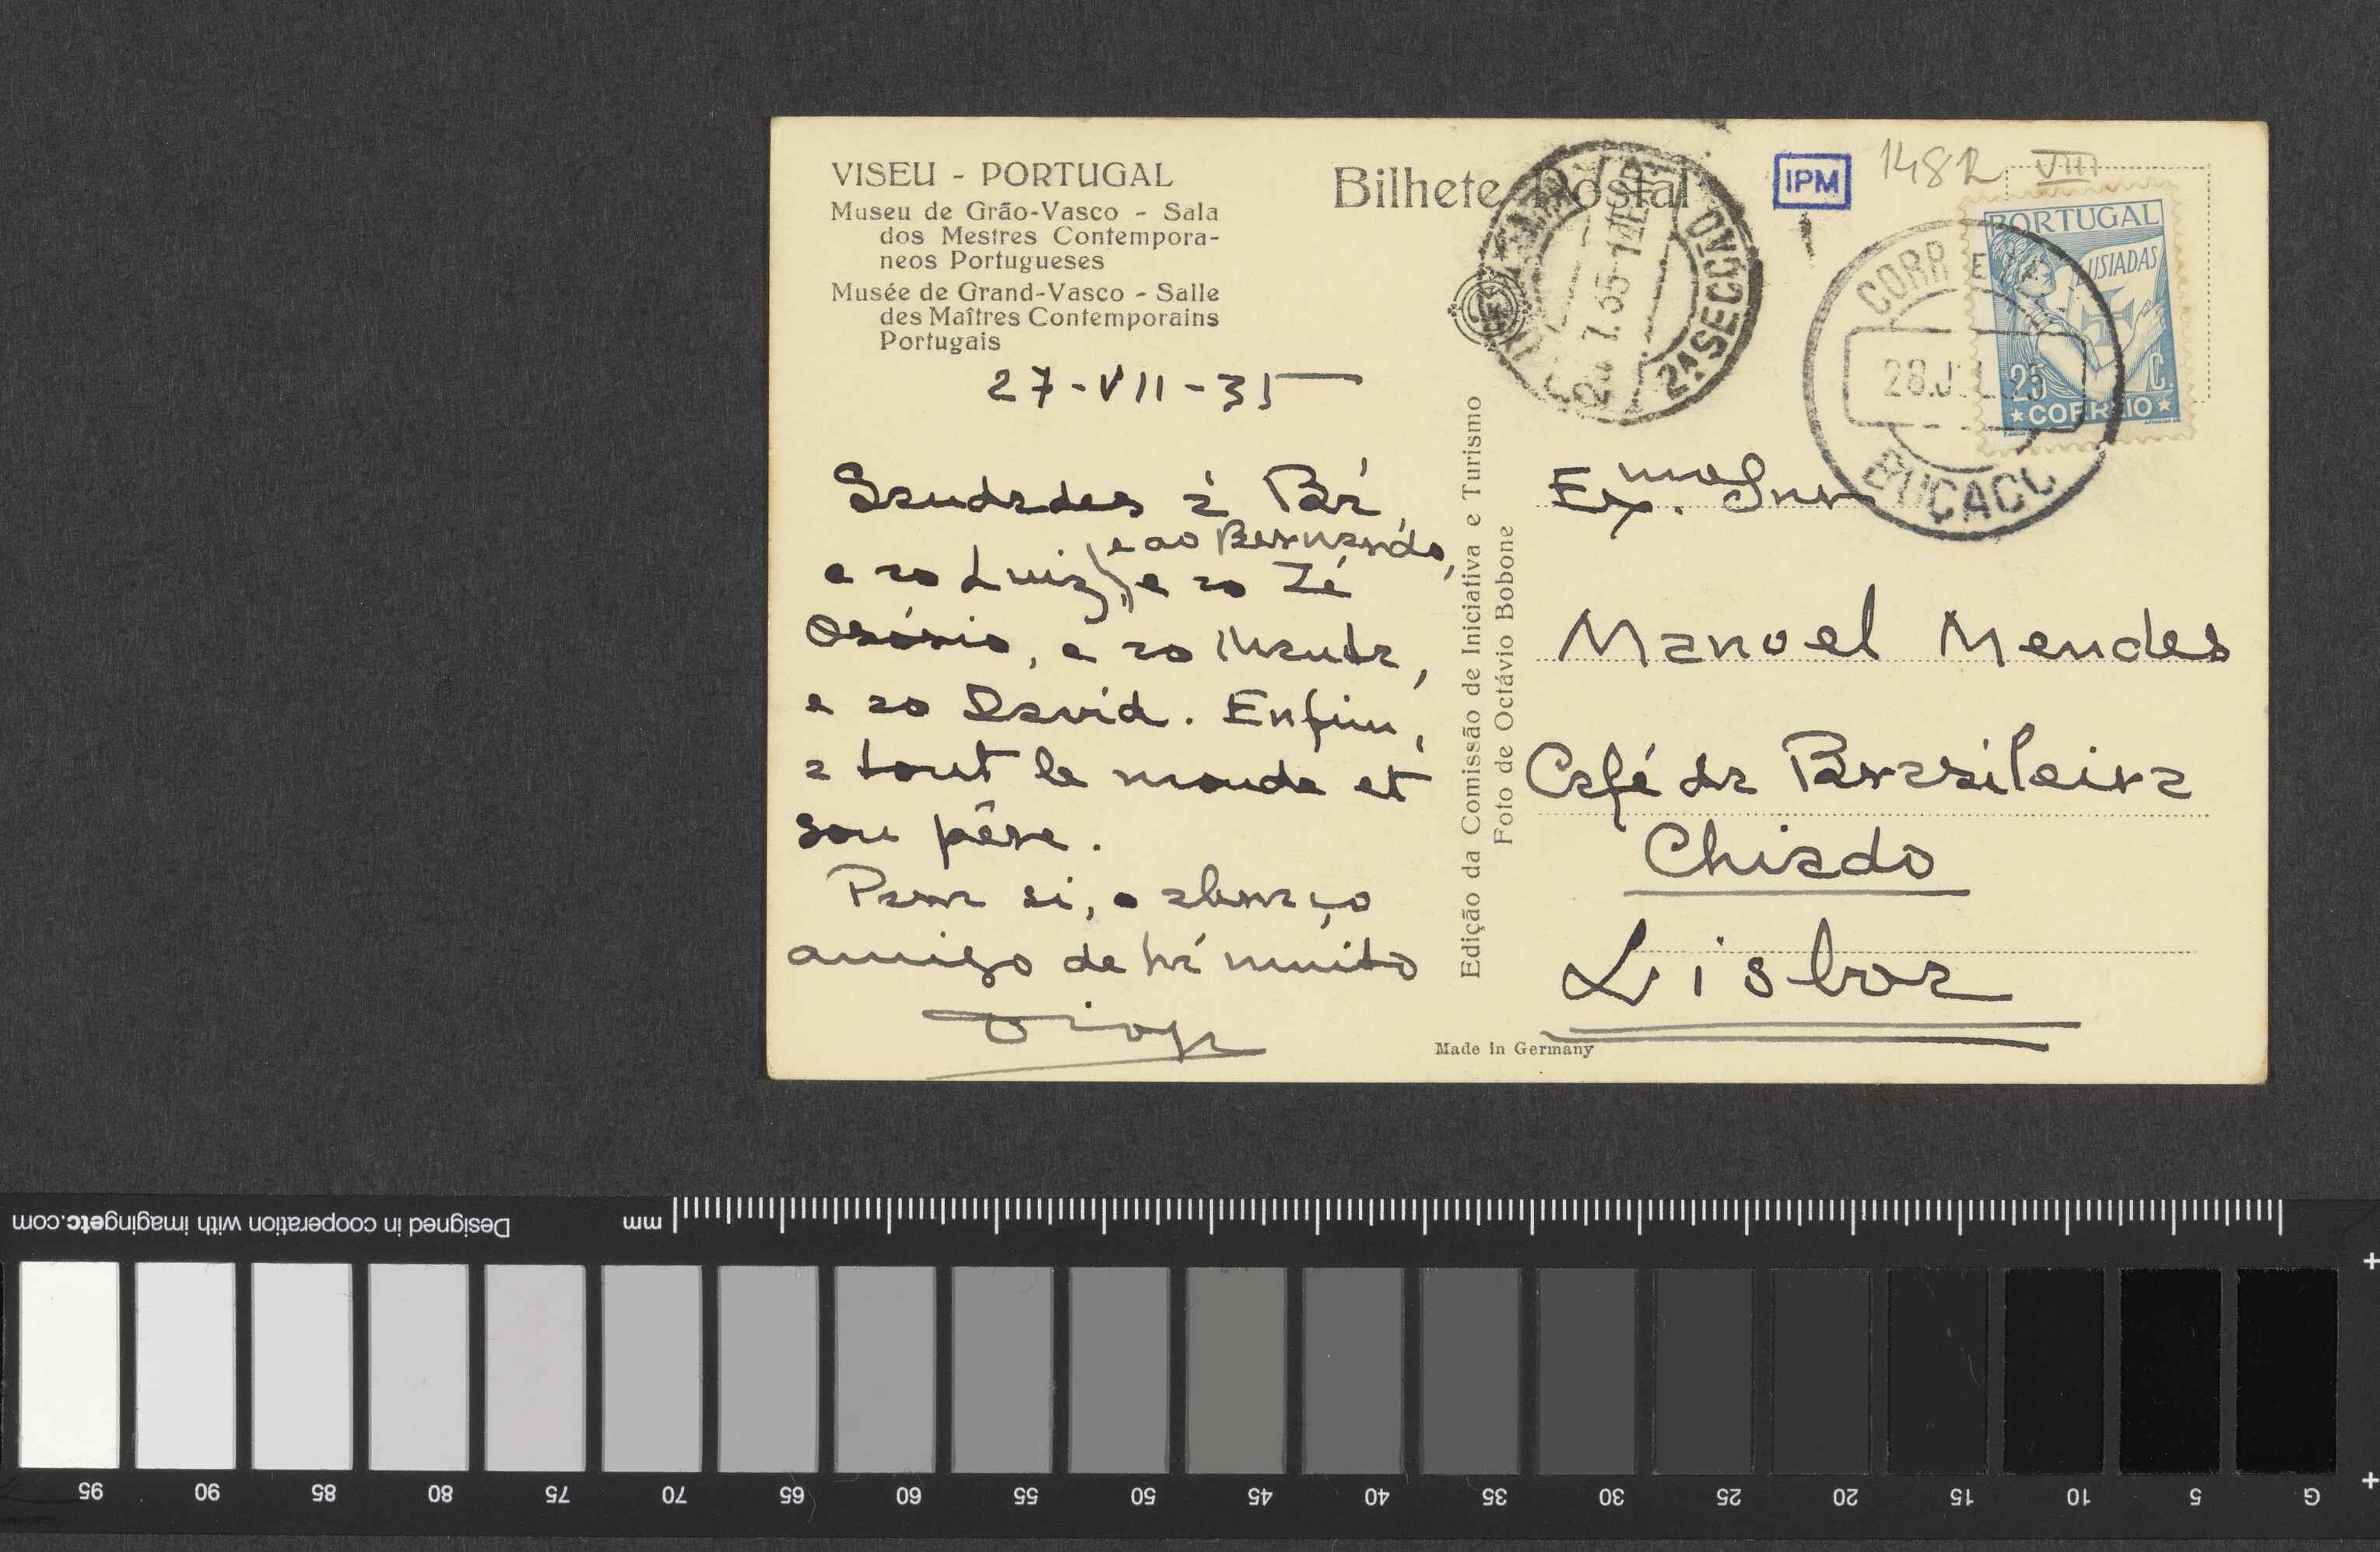 VISEU - PORTUGAL
Museu de Grão-Vasco - Sala
dos Mestres Contempora-
neos Portugueses
Musée de Grand-Vasco - Salle
des Maîtres Contemporains
Portugais
27-VII-35
Saudades à Bá,
e ao Bernardo,
e ao Luiz, e ao Zé
Osório, e ao Manta,
e ao David. Enfim,
a tout le monde et
son père.
Para si, o abraço
amigo de há muito
Diogo
Bilhete Postal
Edição da Comissão de Iniciativa e Turismo
Foto de Octávio Bobone
Made in Germany
2ª SECÇÃO
IPM
1482 VIII
PORTUGAL
LUSIADAS
25 C.
★CORREIO★
28.JUL.
BUÇACO
Ex.mo Snr
Manoel Mendes
Café da Brazileira
Chiado
Lisboa
Designed in cooperation with imagingetc.com
mm
95 90 85 80 75 70 65 60 55 50 45 40 35 30 25 20 15 10 5 G